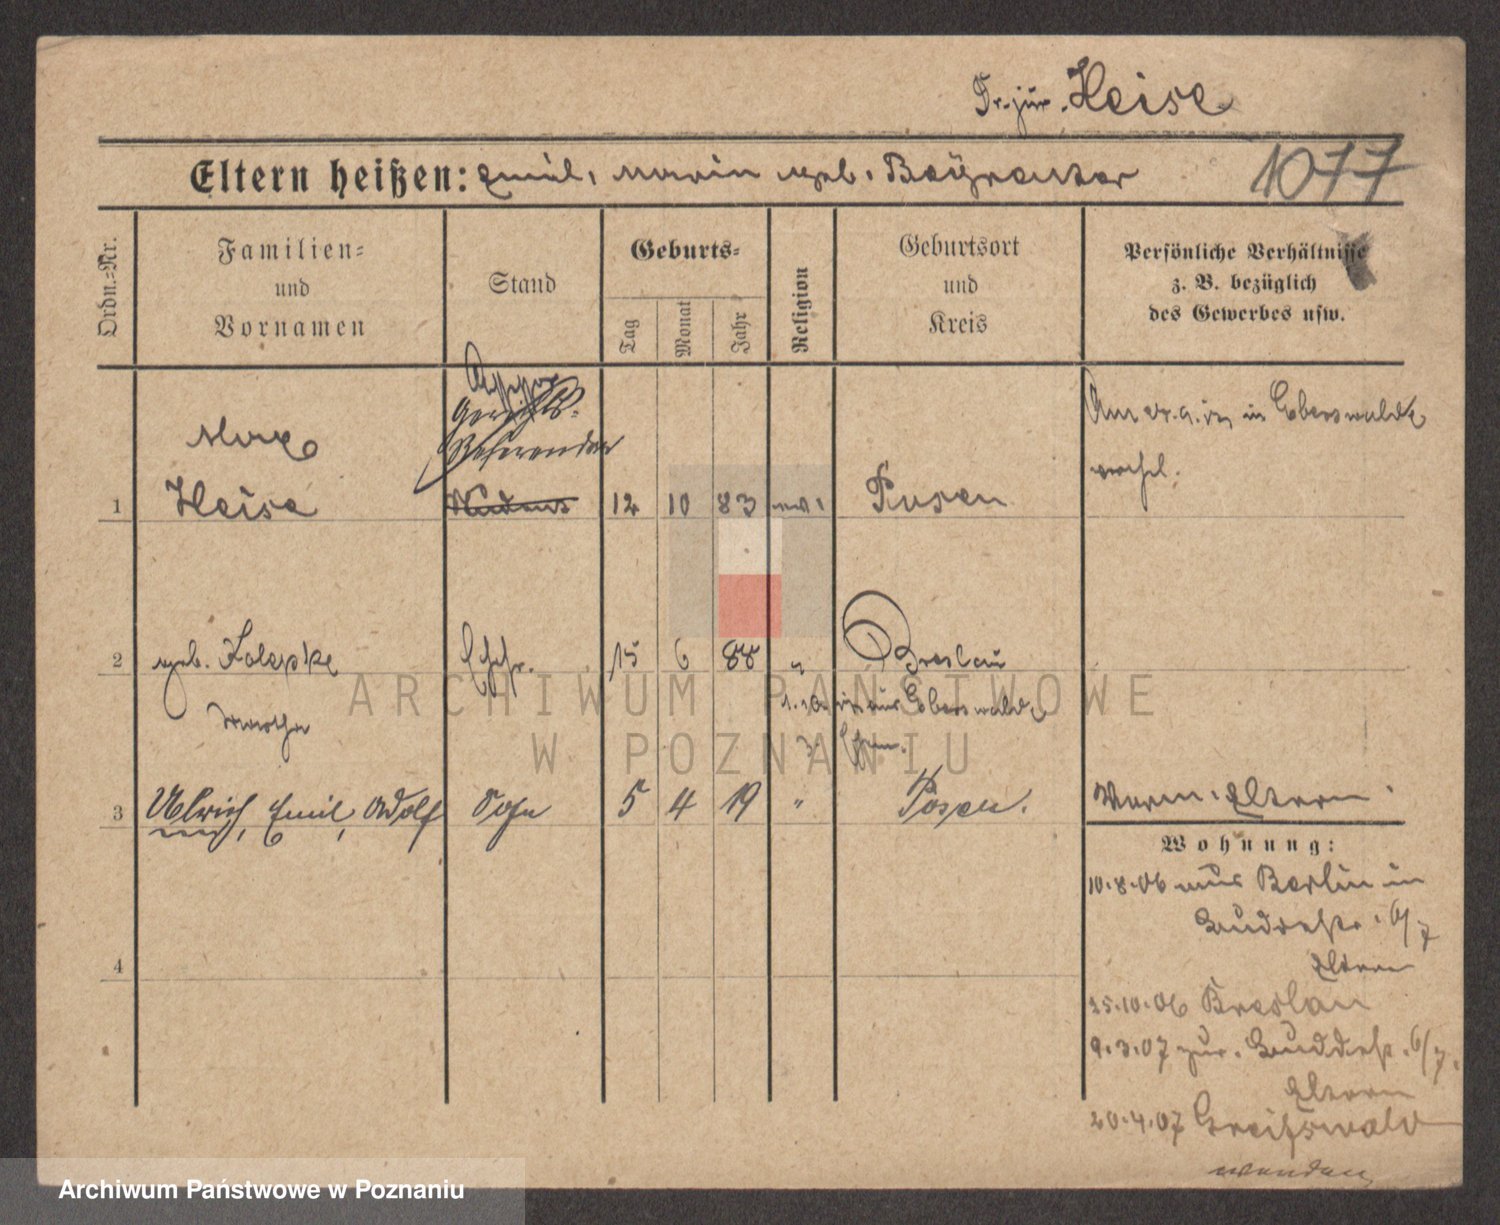 Dr. jur. Heise
Eltern heißen: Emil, Marie geb. Baÿreuter
1077
Ordn.=Nr.
Familien=
und
Vornamen
Stand
Geburts=
Tag
Monat
Jahr
Religion
Geburtsort
und
Kreis
Persönliche Verhältnisse
z. B. bezüglich
des Gewerbes usw.
Assessor
Gerichts-
Referendar
Max
1 Heise Student 12 10 83 ev. Posen
in Eberswalde
2 geb. Ehefr. 15 6 88 " Breslau
Martha
aus Eberswalde
3 Ulrich, Emil, Adolf Sohn 5 4 19 " Posen.
Verm. Eltern
Wohnung:
10.8.06 aus Berlin in
6/7
Eltern
25.10.06 Breslau
9.3.07 zur. 6/7.
Eltern
20.4.07 Greifswald
wenden
4
ARCHIWUM PAŃSTWOWE
W POZNANIU
Archiwum Państwowe w Poznaniu